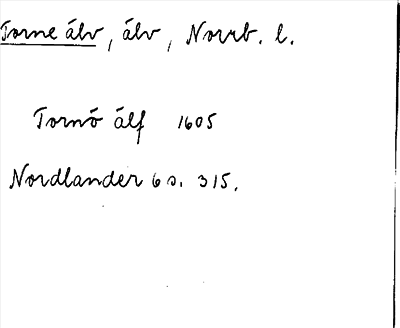 Torne älv, älv, Norrb. l.
Tornö älf 1605
Nordlander 6 s. 315.